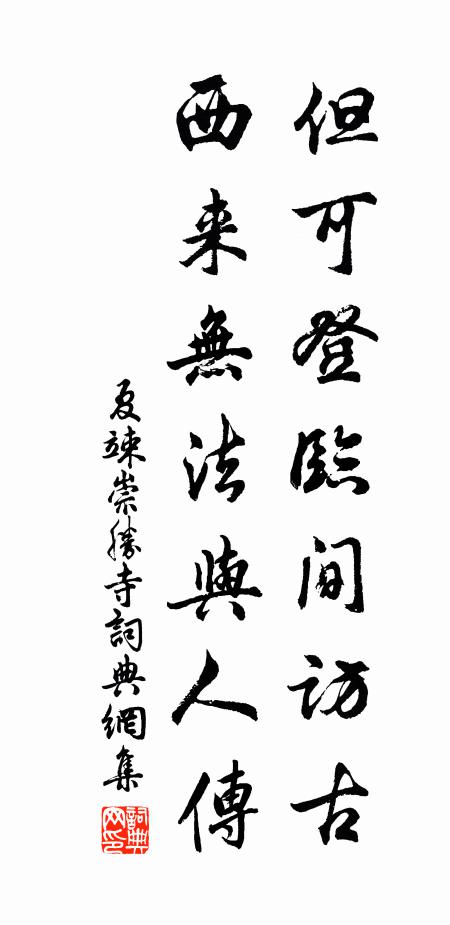 但可登臨間訪古
西来無法與人傳
夏竦崇勝寺詞典網集
詞典网印